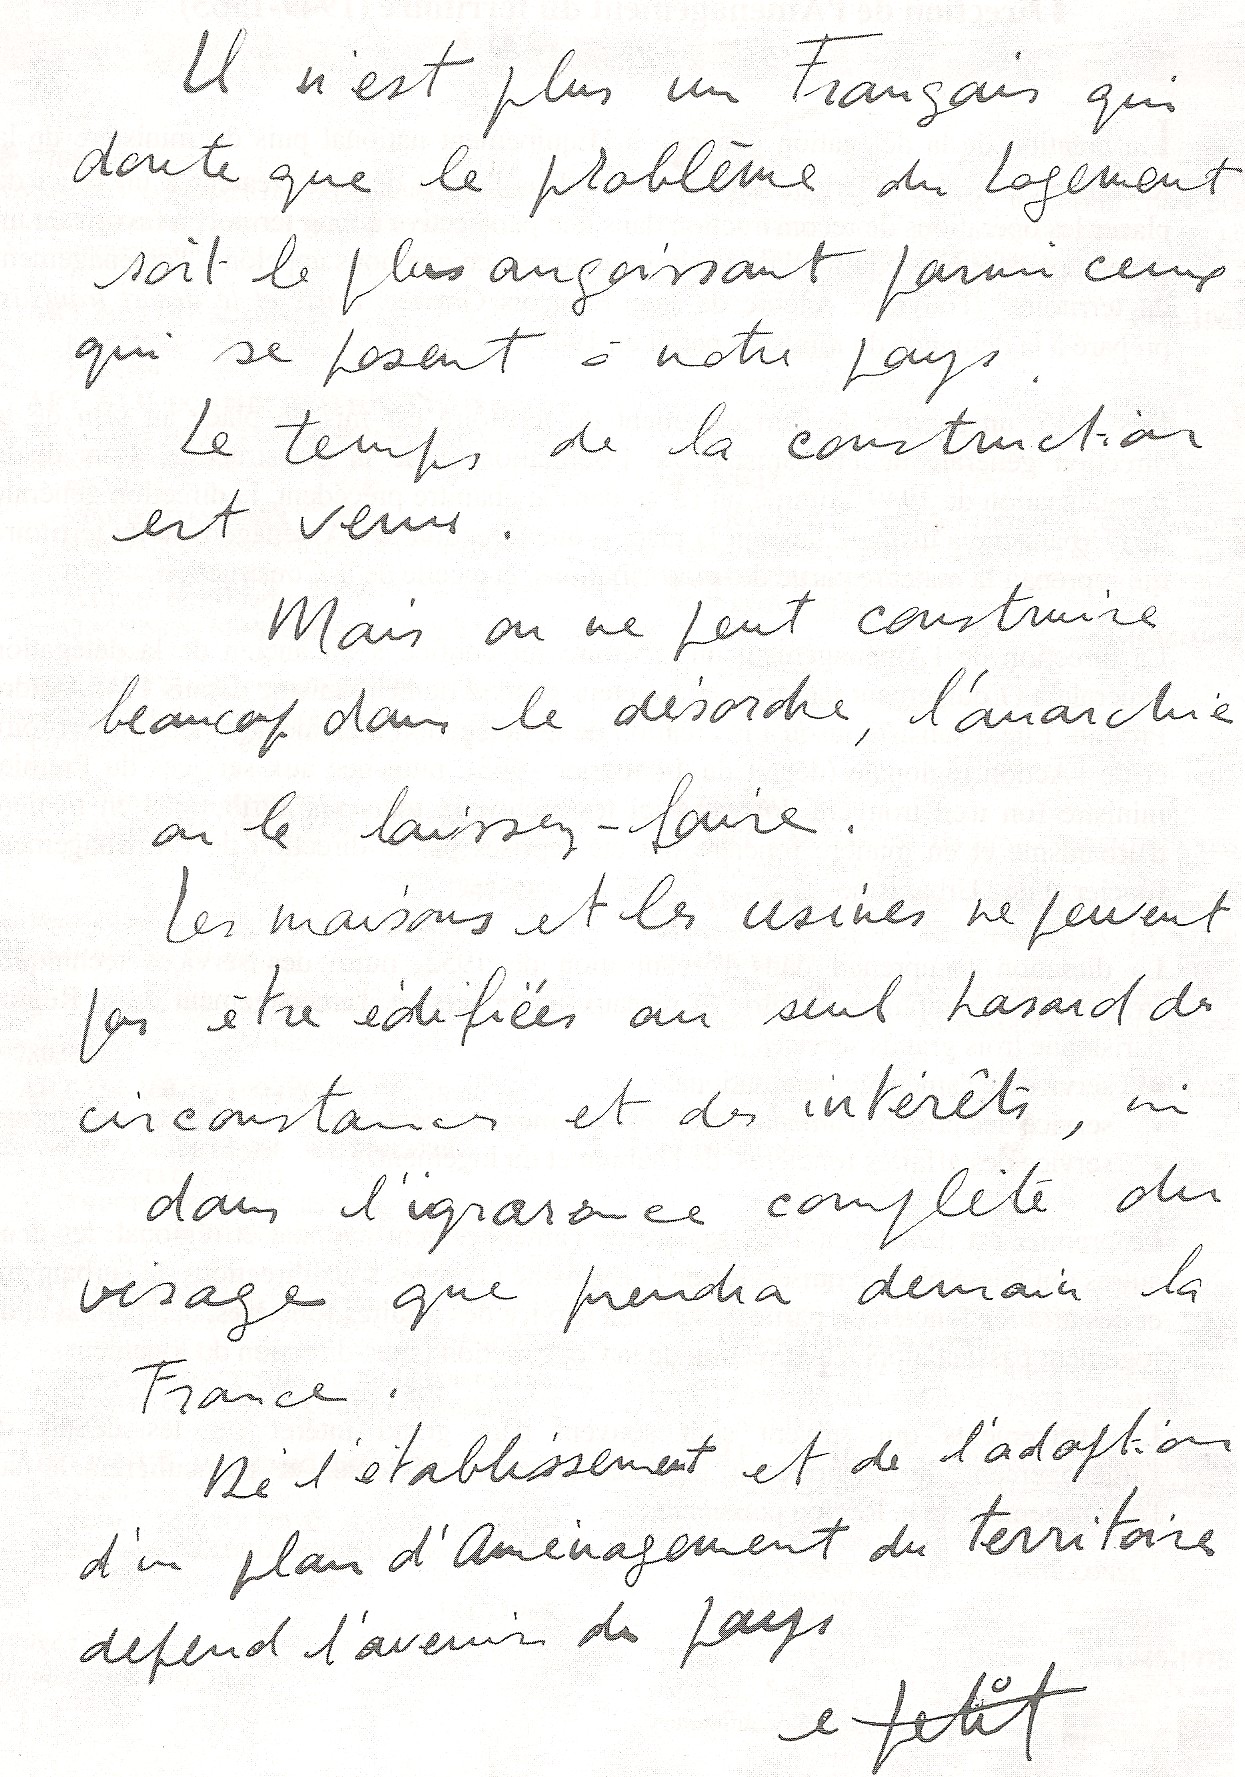 Il n'est plus un Français qui
doute que le problème du Logement
soit le plus angoissant parmi ceux
qui se posent à notre pays.
Le temps de la construction
est venu.
Mais on ne peut construire
beaucoup dans le désordre, l'anarchie
ou le laissez-faire.
Les maisons et les usines ne peuvent
pas être édifiées au seul hasard des
circonstances et des intérêts, ni
dans l'ignorance complète du
visage que prendra demain la
France.
De l'établissement et de l'adoption
d'un plan d'Aménagement du territoire
depend l'avenir du pays
e petit